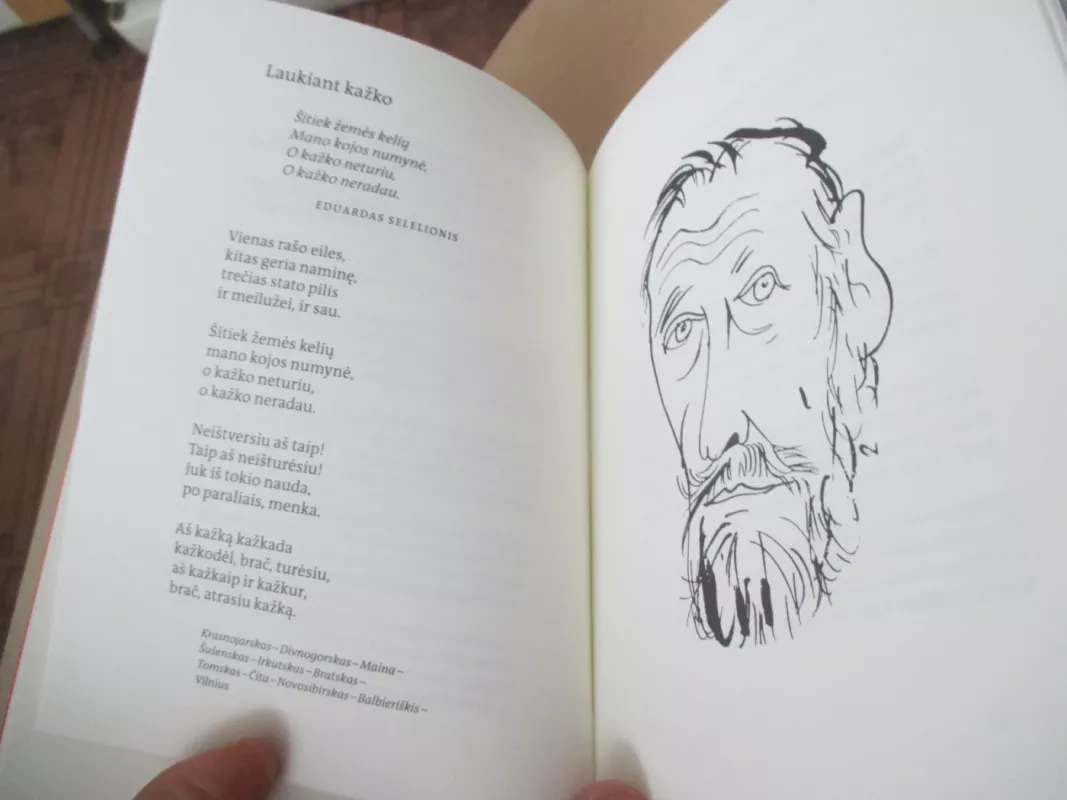 Laukiant kažko
Šitiek žemės kelių
Mano kojos numynė,
O kažko neturiu,
O kažko neradau.
EDUARDAS SELELIONIS
Vienas rašo eiles,
kitas geria naminę,
trečias stato pilis
ir meilužei, ir sau.
Šitiek žemės kelių
mano kojos numynė,
o kažko neturiu,
o kažko neradau.
Neištversiu aš taip!
Taip aš neišturėsiu!
Juk iš tokio nauda,
po paraliais, menka.
Aš kažką kažkada
kažkodėl, brač, turėsiu,
aš kažkaip ir kažkur,
brač, atrasiu kažką.
Krasnojarskas – Divnogorskas – Maina –
Šušenskas – Irkutskas – Bratskas –
Tomskas – Čita – Novosibirskas – Balbieriškis –
Vilnius